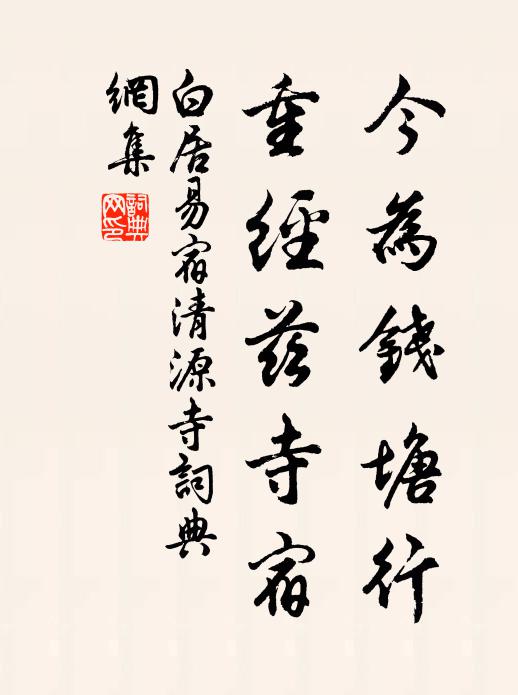 今為錢塘行
重經兹寺宿
白居易宿清源寺詞典
網集
詞典
网印